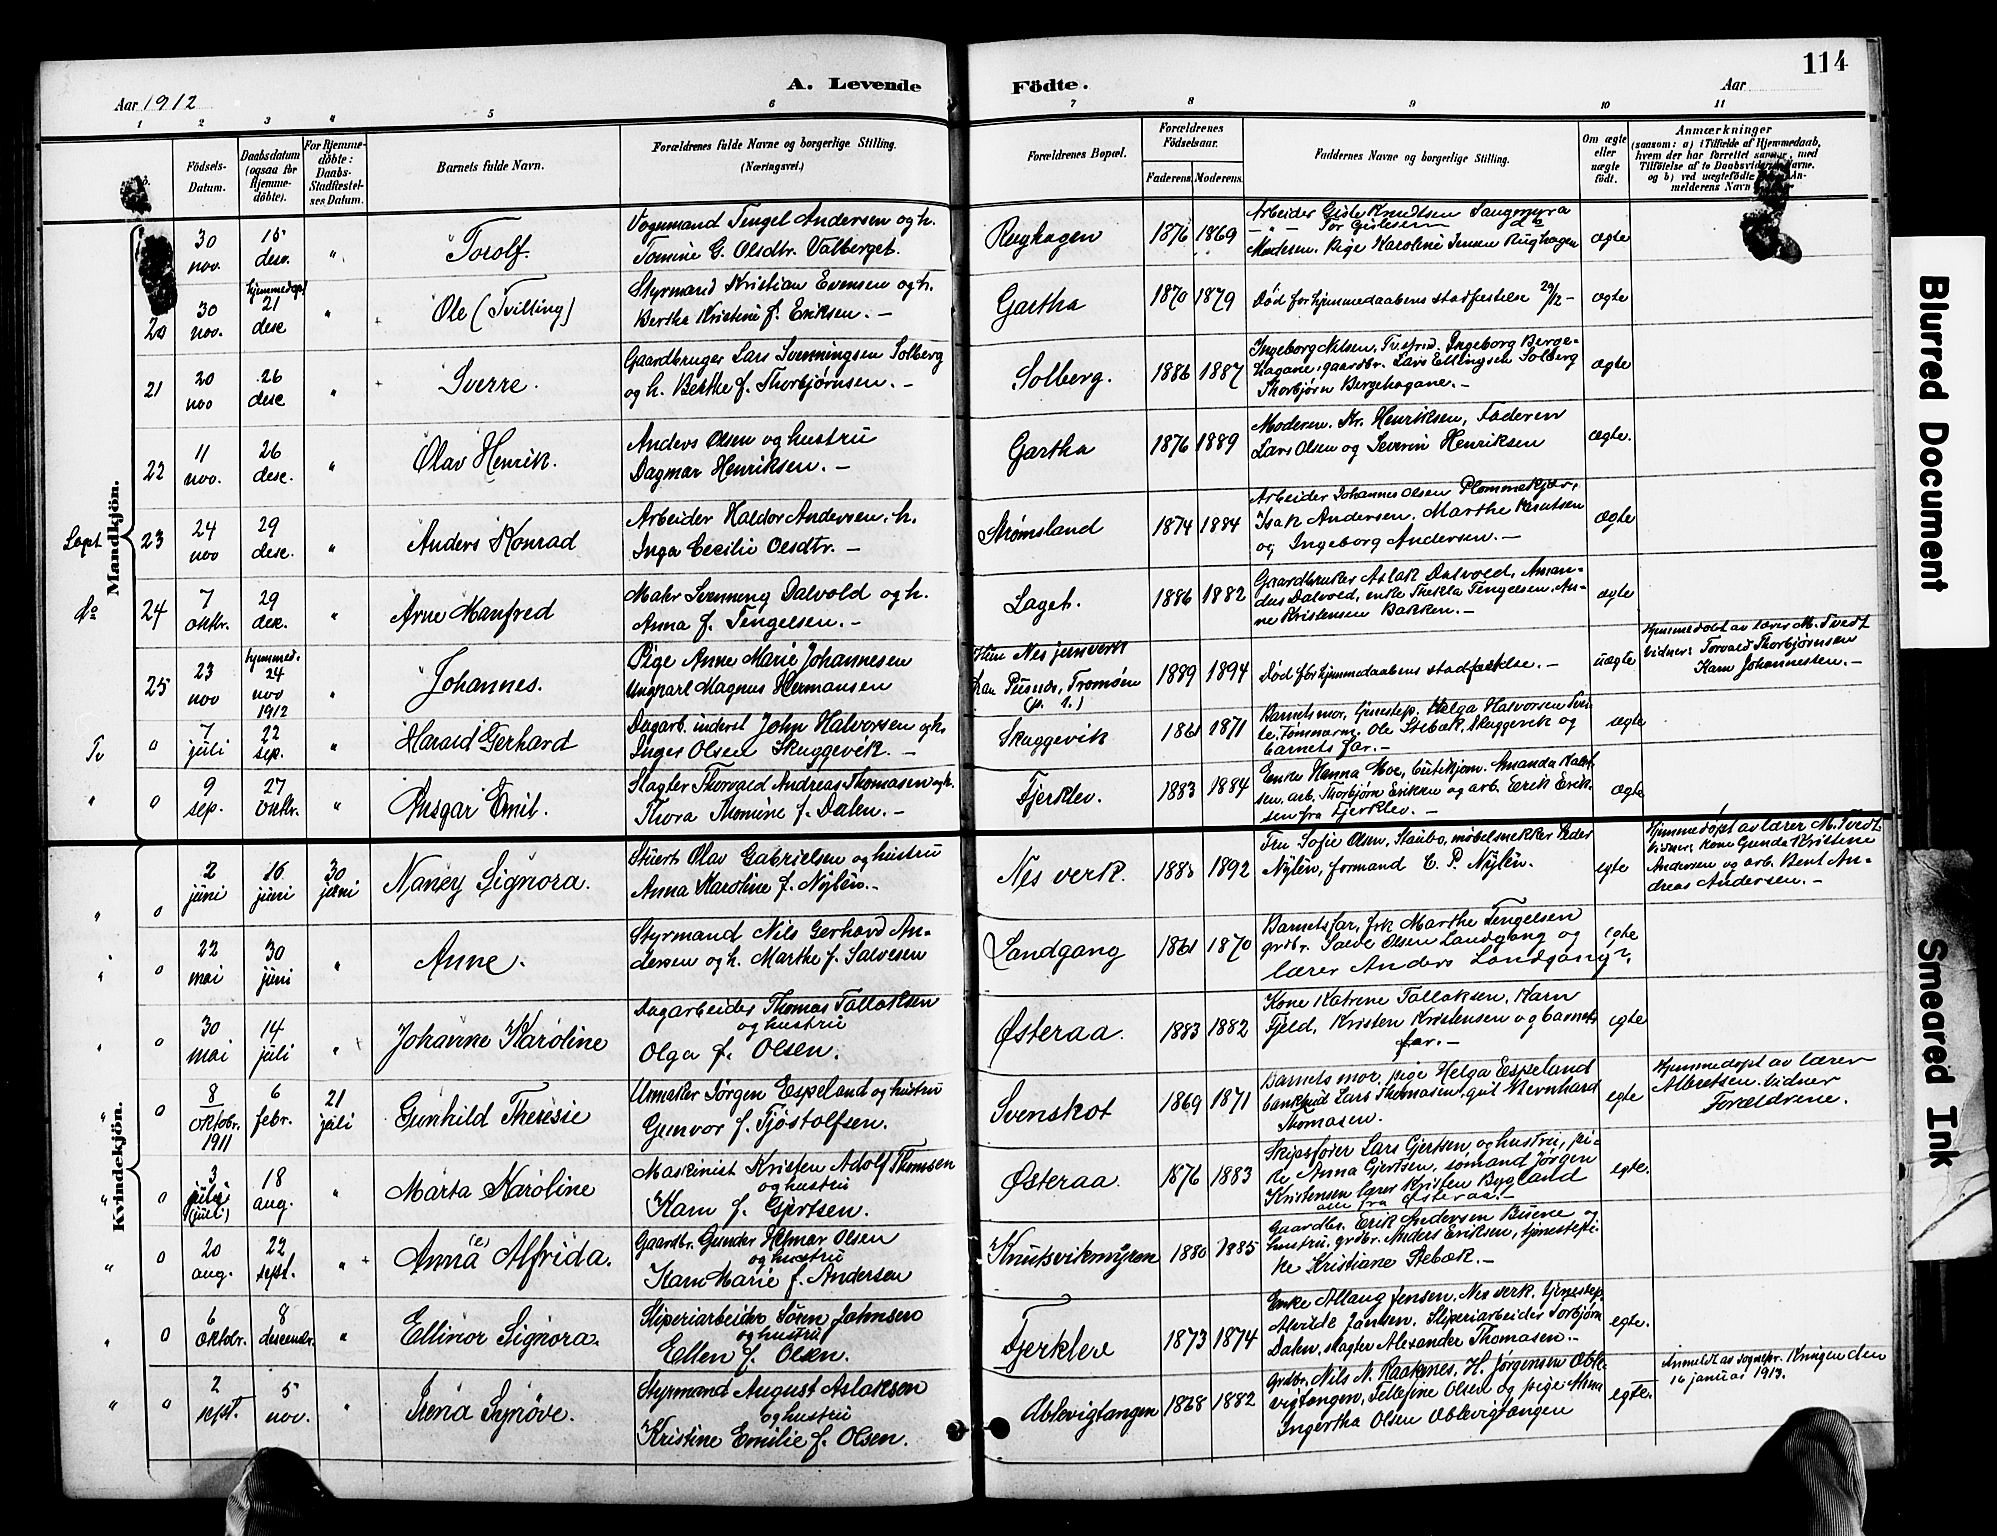 114
Aar 1912
A. Levende
Födte.
Aar
1 2 3 4 5 6 7 8 9 10 11
Födsels-Datum.
Daabsdatum (ogsaa for Hjemme-döbte).
For Hjemme-döbte: Daabs-Stadfæstel-ses Datum.
Barnets fulde Navn.
Forældrenes fulde Navne og borgerlige Stilling. (Næringsvei.)
Forældrenes Bopæl.
Forældrenes Födselsaar.
Faderens. Moderens.
Faddernes Navne og borgerlige Stilling.
Om ægte eller uægte födt.
Anmærkninger
(saasom: a) i Tilfælde af Hjemmedaab,
hvem der har forrettet samme, med
Tilföielse af to Daabsvidners Navne.
og b) ved uægtefödte: An-
melderens Navn
Mandkjön.
30 nov. 15 des. " Torolf.
Vognmand Tengel Andersen og h.
Tomine G. Olsdtr. Valberget.
Rughagen 1876 1869
Arbeider Gisle Knudtsen Saugmyra
— " — Tor Gislesen do
Moderen. Pige Karoline Jensen Rughagen
ægte
20 30 nov. hjemmedøpt 21 dese " Ole (Tvilling)
Styrmand Kristian Evensen og h.
Bertha Kristine f. Eriksen. —
Gartha 1870 1879
Død før hjemmedaabens stadfæstelse 29/12 —
ægte
21 20 nov 26 dese " Sverre.
Gaardbruger Lars Svenningsen Solberg
og h. Berthe f. Thorbjørnsen. —
Solberg. 1886 1887
Ingeborg Nilsen, Tvesfred. Ingeborg Berge-
hagane, gaardbr. Lars Ellingsen Solberg
Thorbjørn Bergehagane. —
ægte
22 11 nov. 26 dese. " Olav Henrik.
Anders Olsen og hustru
Dagmar Henriksen. —
Gartha 1876 1889
Moderen. Kr. Henriksen, Faderen
Lars Olsen og Severin Henriksen
ægte.
Laget 23 24 nov 29 dese. " Anders Konrad
Arbeider Haldor Andersen. h.
Inga Cecilie Olsdtr. —
Strømsland 1874 1884
Arbeider Johannes Olsen Plommekjær,
Isak Andersen, Marthe Knutsen
og Ingeborg Andersen. —
ægte
do 24 7 oktbr. 29 des. " Arne Manfred
Maler Svenning Dalvold og h.
Anna f. Tengelsen. —
Laget. 1886 1882
Gaardbruker Aslak Dalvold, Aman-
dus Dalvold, enke Thekla Tengelsen, An-
ne Kristensen Bakken. —
ægte
25 23 nov hjemmed. 24 nov 1912 " Johannes.
Pige Anne Marie Johannesen
Ungkarl Magnus Hermansen
Hun Nes jernverk
han Pusnes, Tromøen
(p. t.)
1889 1894
Død før hjemmedaabens stadfæstelse. —
uægte
Hjemmedøbt av lærer M. Tvedt
Vidner: Torvald Thorbjørnsen
Karn Johannesten. —
Tv 0 7 juli 22 sep. " Harald Gerhard
Dagarb. inderst John Halvorsen og h.
Inger Olsen Skuggevik. —
Skuggevik 1861 1871
Barnets mor, tjenestep. Helga Halvorsen Tvei-
te, Tømmerm. Ole Stebæk, Skuggevik og
barnets far. —
ægte
" 0 9 sep. 27 oktbr. " Ansgar Emil.
Slagter Thorvald Andreas Thomasen og h.
Thora Thomine f. Dalen. —
Fjerklev. 1883 1884
Enke Hanna Moe, butikjom. Amanda Kalef-
sen, arb. Thorbjørn Eriksen og arb. Eerik Erik-
sen fra Fjerklev. —
ægte
Kvindekjön.
" 0 2 juni 16 juni 30 juni Nancy Signora.
Stuert Olav Gabrielsen og hustru
Anna Karoline f. Nylén. —
Nes verk. 1885 1892
Fru Sofie Olsen, Staubo, møbelsnekker Peder
Nylén, formand C. P. Nylén.
egte
Hjemmedøpt av lærer M. Tvedt.
Vidner, kone Gunda Kristine
Andersen og arb. Bent An-
dreas Andersen. —
" 0 22 mai 30 juni " Anne.
Styrmand Nils Gerhard An-
dersen og h. Marthe f. Salvesen
Landgang 1861 1870
Barnets far, frk Marthe Tengelsen
grdbr. Salve Olsen Landgang og
lærer Anders Landgang
egte
" 0 30 mai 14 juli " Johanne Karoline
Dagarbeider Thomas Tallaksen
og hustru
Olga f. Olsen.
Østeraa. 1883 1882
Kone Katrine Tallaksen, Karn
Fjeld, Kristen Kristensen og barnets
far. —
egte
" 0 8 oktobr. 1911 6 febr. 21 juli Gunhild Theresie
Urmaker Jörgen Espeland og hustru
Gunvor f. Tjöstolfsen.
Svenskot 1869 1871
Barnets mor, pige Helga Espeland
bankbud Lars Thomasen, gut Bernhard
Thomasen.
egte
Hjemmedøpt av lærer
Albretsen. Vidner
Forældrene.
" 0 3 juli (juli) 18 aug. " Marta Karoline
Maskinist Kristen Adolf Thomsen
og hustru
Karn f. Gjertsen.
Østeraa. 1876 1883
Skipsfører Lars Gjertsen og hustru, pi-
ke Anna Gjertsen, sømand Jörgen
Kristensen lærer Kristen Bygland
alle fra Østeraa. —
egte.
" 0 20 aug. 22 sept. " Anna (e) Alfrida.
Gaardbr. Gunder Helmar Olsen
og hustru
Karn Marie f. Andersen
Knutsvikmyren 1880 1885
Gaardbr. Erik Andersen Buene og
hustru, grdbr. Anders Eriksen, tjenestepi-
ke Kristiane Stebæk. —
" 0 6 oktobr. 8 desembr. " Ellinor Signora.
Sliperiarbeider Søren Jahnsen
og hustru
Ellen f. Olsen.
Fjerkleve 1873 1874
Enke Allaug Jensen, Nes verk, tjenestep.
Alvilde Jansen, Sliperiarbeider Torbjørn
Dalen, slagter Alexander Thomasen. —
egte.
" 0 2 sept. 5 nov. " Irena Synöve.
Styrmand August Aslaksen
og hustru
Kristine Emilie f. Olsen.
Ablevigtangen 1868 1882
Grdbr. Nils N. Raaknes, H. Jørgensen Able-
vigtangen, Tellefine Olsen og pige Alma
Ingertha Olsen Ablevigtangen
egte.
Anmeldt av sognepr. Kningen den
16 januar 1913.
Blurred Document
Smeared Ink